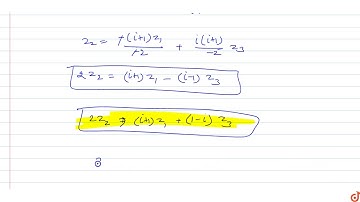 z₂ = +(i+1)z₁/+2 + i(i+1)/-2 z₃
2z₂ = (i+1)z₁ - (i-1)z₃
2z₂ = (i+1)z₁ + (1-i)z₃